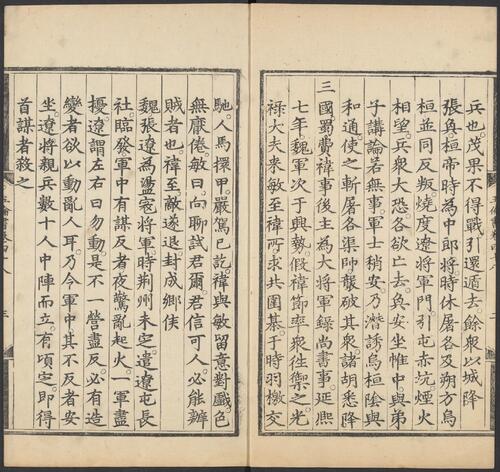 兵也。茂果不得戰引還遁去。餘衆以城降
張奐桓帝時為中郎將時休屠各及朔方烏
桓並同反叛燒度遼將軍門。引屯赤坑煙火
相望。兵衆大恐。各欲亡去。奐安坐帷中與弟
子講論。若無事。軍士稍安。乃潛誘烏桓隂與
和通。使之斬屠各渠帥。襲破其衆。諸胡悉降
三國蜀費禕事後主為大將軍錄尚書事。延熈
七年。魏軍次于興勢。假禕節率衆往禦之。光
祿大夫來敏至禕所求共圍棊。于時羽檄交
馳。人馬擐甲。嚴駕已訖。禕與敏留意對戲。色
無厭倦。敏曰。向聊試君爾。君信可人。必能辦
賊者也。禕至敵遂退。封成鄉侯
魏張遼為盪寇將軍時荆州未定。遣遼屯長
社。臨發。軍中有謀反者。夜驚亂起火。一軍盡
擾。遼謂左右曰。勿動。是不一營盡反。必有造
變者。欲以動亂人耳。乃令軍中其不反者安
坐。遼將親兵數十人中陣而立。有頃定。即得
首謀者殺之